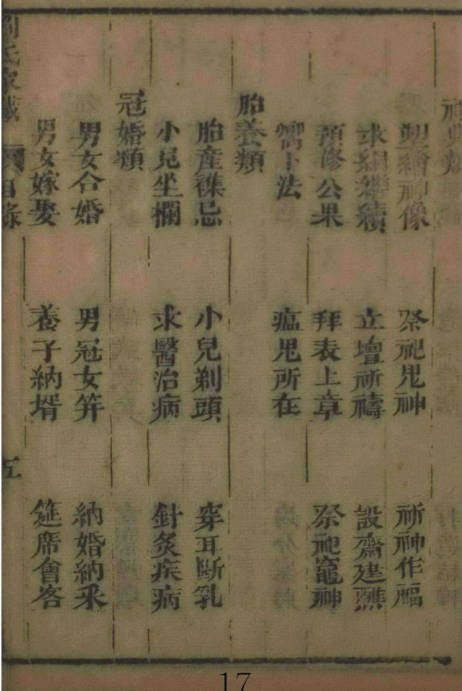 祀典類
塑繪神像 祭祀鬼神 祈神作福
求嗣繼續 立壇祈禱 設齋建醮
預修公果 拜表上章 祭祀竈神
嚮卜法 瘟鬼所在
胎養類
胎產雜忌 小兒剃頭 穿耳斷乳
小兒坐欄 求醫治病 針灸疾病
冠婚類
男女合婚 男冠女笄 納婚納采
男女嫁娶 養子納壻 筵席會客
劉氏家藏 目錄 五
17